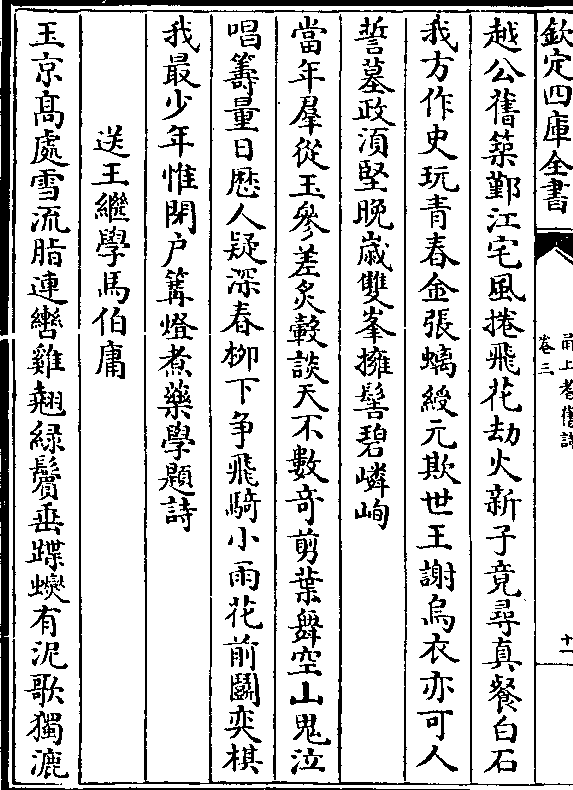 欽定四庫全書
卷三
十一
越公舊築鄞江宅風捲飛花劫火新子竟尋真餐白石
我方作史玩青春金張螭綬元欺世王謝烏衣亦可人
誓墓政須堅晚歲雙峯擁髻碧嶙峋
當年羣從玉參差炙轂談天不數奇剪葉舞空山鬼泣
唱籌量日厯人疑深春柳下争飛騎小雨花前鬭奕棋
我最少年惟閉户篝燈煮藥學題詩
送王繼學馬伯庸
玉京髙處雪流脂連轡雞翹緑鬢垂蹀躞有泥歌獨漉